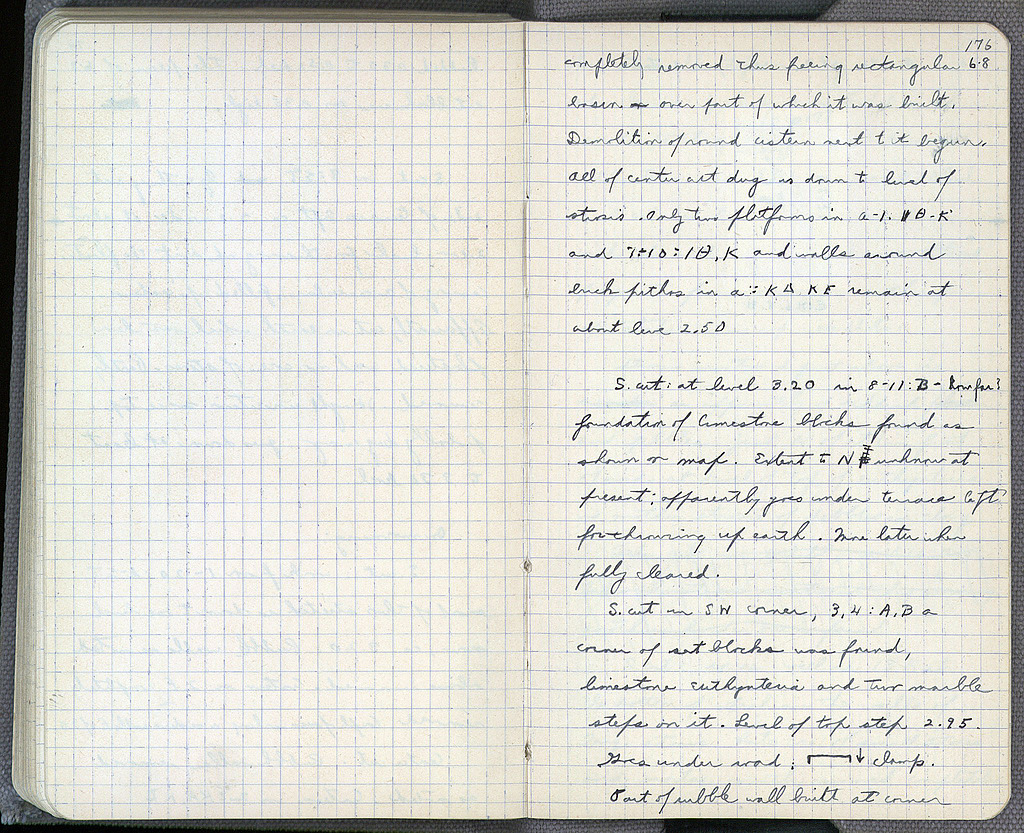 176
completely removed thus freeing rectangular 6·8
basin over part of which it was built.
Demolition of round cistern next to it begun.
All of center cut dug is down to level of
stosis. Only two platforms in a-1. Θ-K
and 7:10:1Θ, K and walls around
brick pithos in a: KΔ KE remain at
about leve 2.50
S. cut: at level 3.20 in 8-11: B- How far?
foundation of limestone blocks found as
shown on map. Extent to N unknown at
present; apparently goes under terrace left
for throwing up earth. More later when
fully cleared.
S. cut in SW corner, 3,4: A,B a
corner of set blocks was found,
limestone euthynteria and two marble
steps on it. Level of top step 2.95.
Goes under road; clamp.
Part of rubble wall built at corner